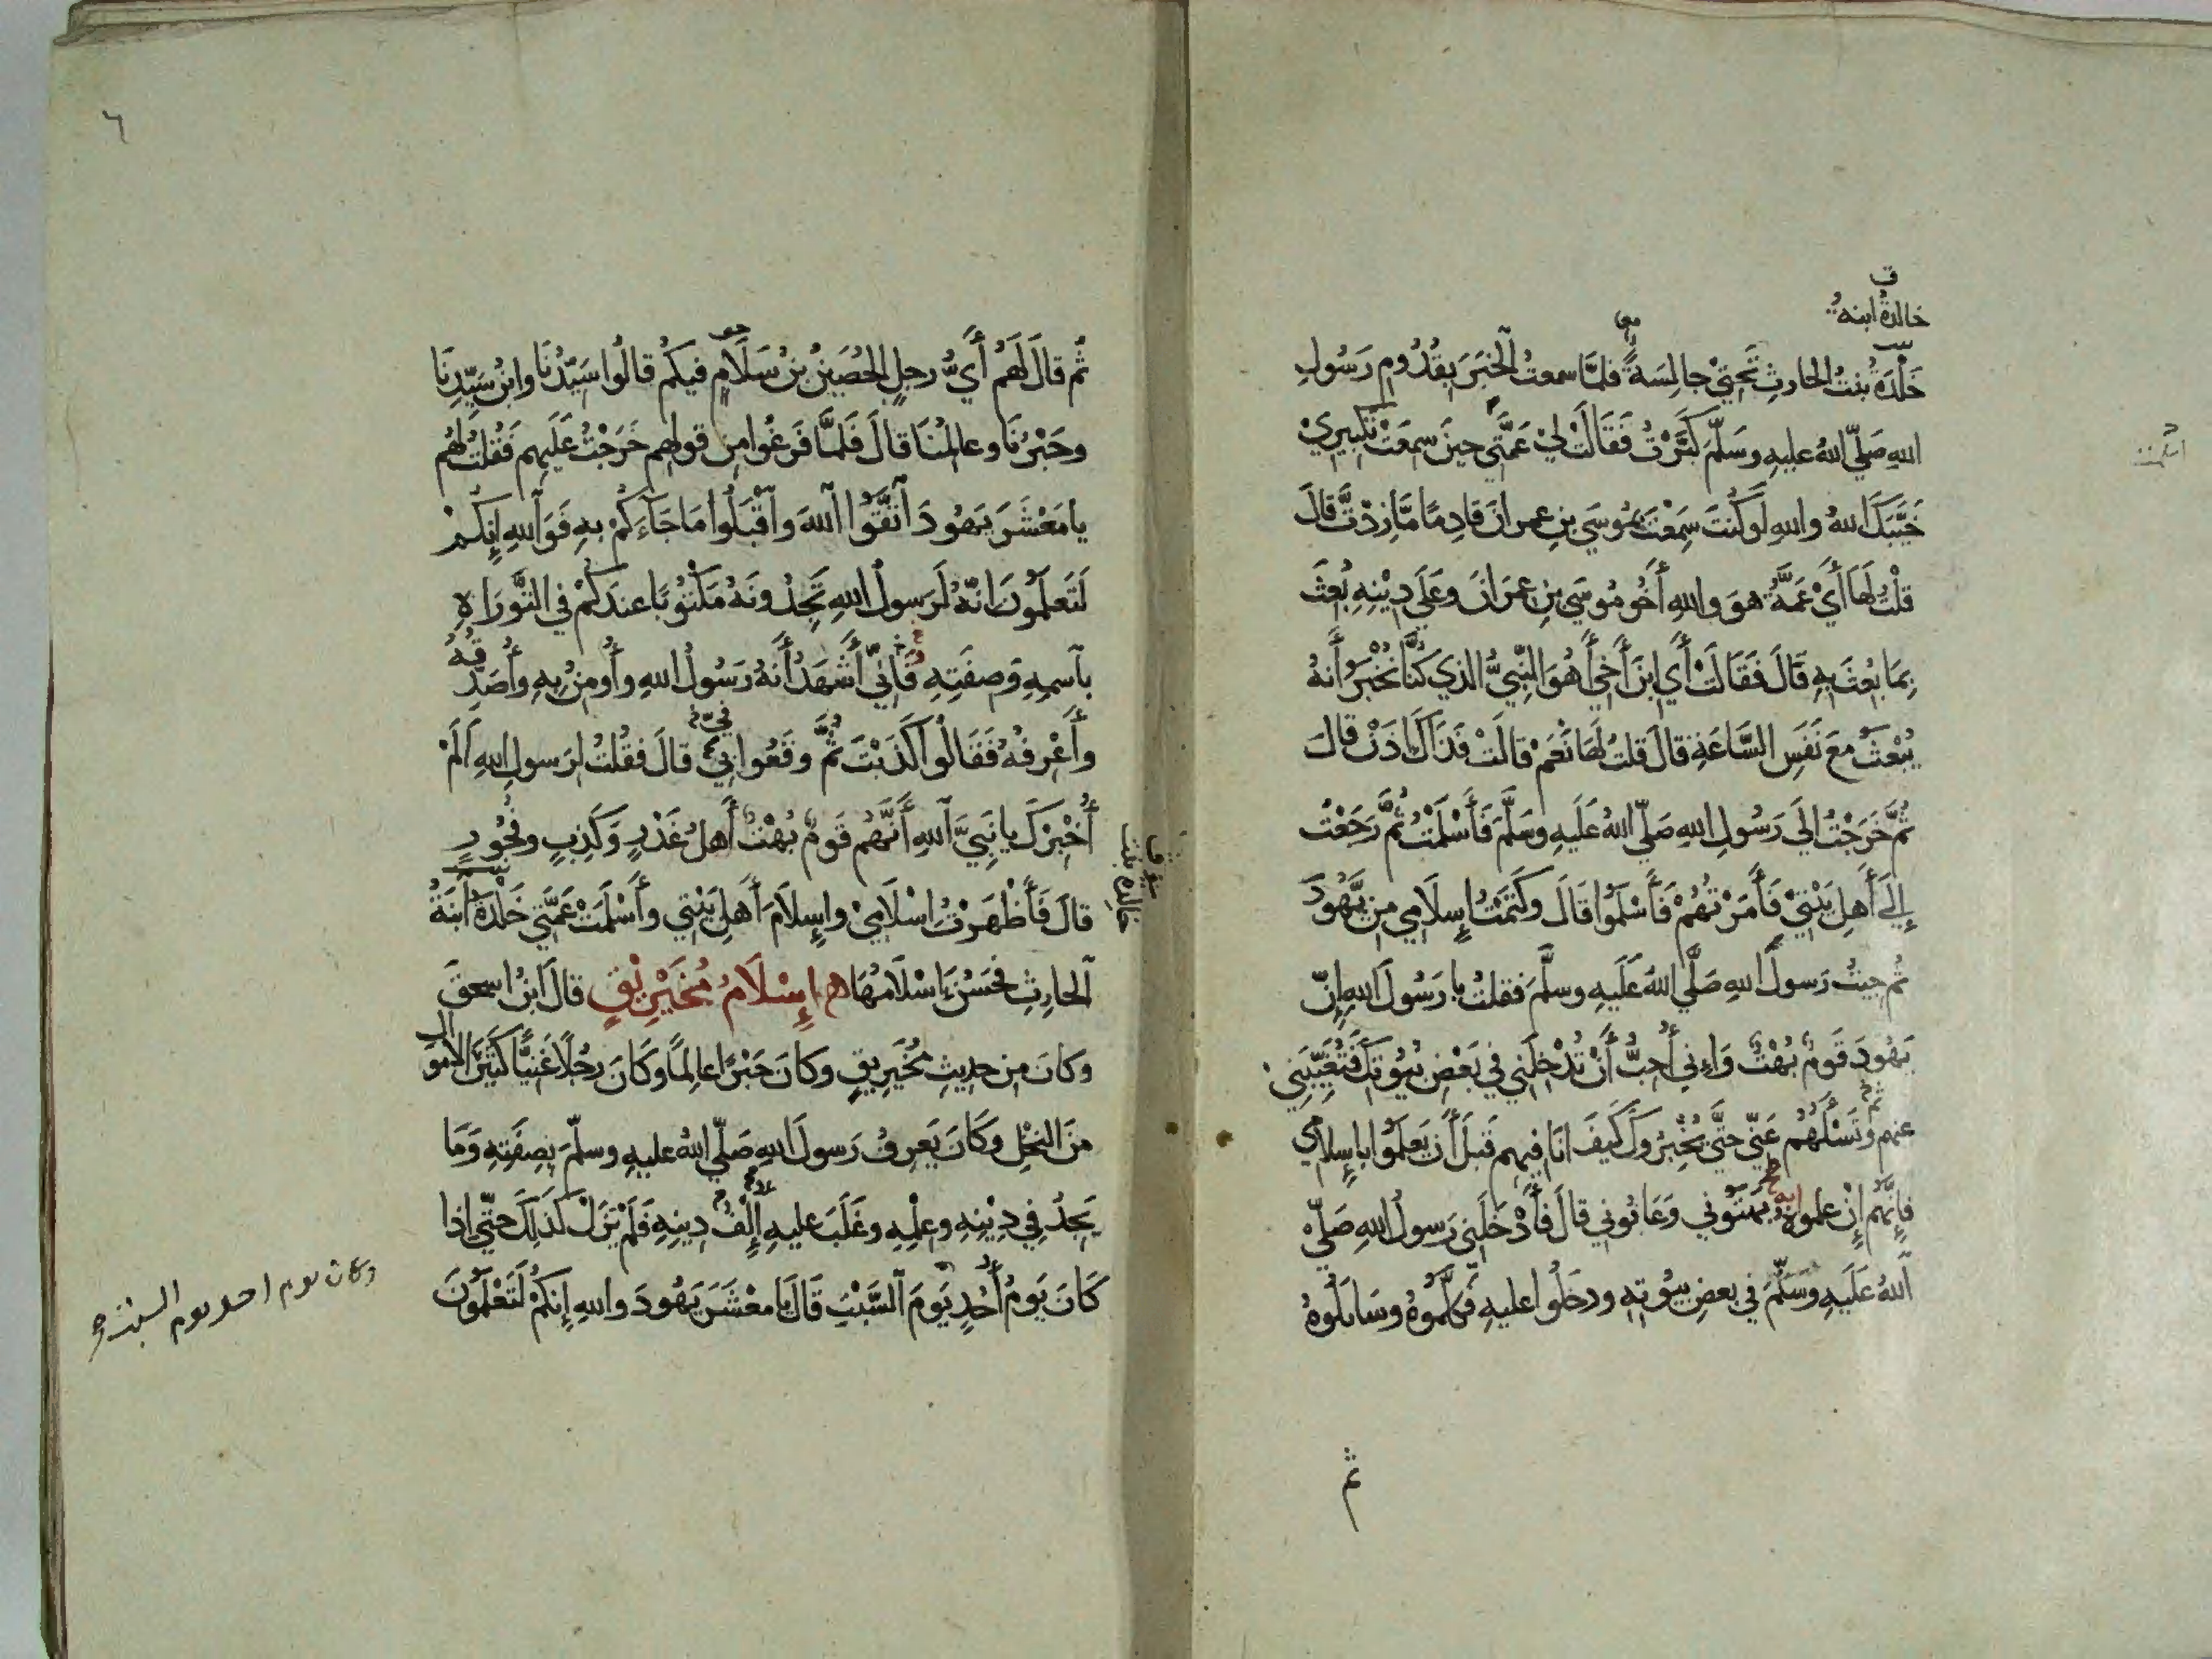 ف
خالدة ابنة
خَلْدَةُ بنتُ الحارثِ تَحْتِي جالِسَةً فلمَّا سمعتُ الخبَرَ بِقُدُومِ رَسُولِ
اللهِ صَلّي اللهُ عليهِ وسَلَّمَ كَبَّرْتُ فَقَالَتْ لِي عَمَّتِي حينَ سمِعَتْ تكبيري
خَيَّبَكَ اللهُ واللهِ لَو كُنتَ سَمِعْتَ بمُوسَي بنِ عمرانَ قادِمًا مَا زِدْتَّ قَالَ
قلْتُ لَهَا أَيْ عَمَّةُ هوَ واللهِ أَخُو مُوسَي بنِ عِمْرَانَ وَعَلَي دِيْنِهِ بُعِثَ
بِمَا بُعِثَ بِهِ قَالَ فَقَالَتْ أَي ابنَ أَخِي أَهُوَ النَّبِيُّ الذي كُنَّا نُخْبَرُ أَنَّهُ
يُبْعَثُ مَعَ نَفَسِ السَّاعَةِ قالَ قلتُ لَهَا نَعَمْ قالَتْ فَذَاكَ إذَنْ قالَ
ثُمَّ خَرَجْتُ الَي رَسُولِ اللهِ صَلّي اللهُ عَلَيهِ وَسَلَّمَ فَأَسْلَمْتُ ثُمَّ رَجَعْتُ
إلَي أَهلِ بَيْتِيْ فَأَمَرْتُهُمْ فَأَسْلَمُوا قَالَ وكَتَمْتُ إِسلَامِي مِن يَّهُودَ
ثُم جيتُ رَسولَ اللهِ صَلَّي اللهُ عَلَيهِ وسلَّمَ فقلتُ يا رَسُولَ اللهِ إنّ
يَهُودَ قَومٌ بُهْتٌ وَإِنِي أُحِبُّ أَنْ تُدْخِلَني في بَعْضِ بُيُوتِكَ فَتُغَيِّبَنِي
عنهم وتَسْلَهُم عَنّي حتَّي يُخْبِرُوكَ كَيفَ انَا فيهم قَبلَ أَن يَعلَمُوا بِإِسلامِي
فإنَّهُم إِنْ علموا بِهِ بَهَتُوني وَعَابُوني قالَ فأَدْخَلَنِي رَسولُ اللهِ صَلّي
اللهُ عَلَيهِ وسَلَّمَ في بعضِ بيُوتِهِ ودخَلُوا عليهِ فكَلَّمُوهُ وسَايَلُوهُ
ثم
٦
ثُم قالَ لَهم أَيُّ رجلٍ الحُصَيْنُ بنُ سَلَامٍ فيكم قالُوا سَيِّدُنَا وابنُ سَيِّدِنَا
وحَبْرُنَا وعالِمُنَا قالَ فَلمَّا فَرَغُوا مِن قولهم خَرَجْتُ عَلَيهِم فَقُلتُ لَهُم
يا مَعْشَرَ يَهُودَ اتَّقُوا اللهَ واقْبَلُوا مَا جَآءَكُمْ بِهِ فَوَاللهِ إِنكم
لَتَعلَمُونَ انّهُ لَرَسولُ اللهِ تَجِدُونَهُ مَكْتُوْبًا عندَكُمْ في التَّورَاةِ
بِاسمِهِ وَصِفَتِهِ فَإنِّي أَشْهَدُ أَنَّهُ رَسُولُ اللهِ وأُومنُ بِهِ وأُصَدِّقُهُ
وأَعْرِفُهُ فَقَالُوا كَذَبْتَ ثُمَّ وقَعُوا بي قالَ فقُلتُ لِرَسولِ اللهِ أَلَمْ
أُخْبِرْكَ يا نَبِيَّ اللهِ أَنَّهُم قَومٌ بُهْتٌ أَهلُ غَدْرٍ وَكَذِبٍ وفُجُورٍ
قالَ فَأَظْهَرْتُ اسْلَامِيْ وإِسلَامَ أَهلِ بَيْتي وأَسْلَمَتْ عَمَّتي خَلْدَةُ ابنَةُ
الحارِثِ فحَسُنَ إِسْلَامُهَا إِسْلَامُ مُخَيْرِيقٍ قالَ ابنُ اسحقَ
وكانَ مِن حديثِ مُخَيرِيقٍ وكانَ حَبْرًا عالِمًا وكَانَ رجُلًا غَنِيًّا كَثيرَ الاموال
منَ النخْلِ وكَانَ يَعرِفُ رَسولَ اللهِ صَلّي اللهُ عليهِ وسلّمَ بِصِفَتِهِ وَمَا
يَجِدُ فِي دِيْنِهِ وعِلْمِهِ وغَلَبَ عليهِ إِلْفُ دِينِهِ فَلَمْ يَزَلْ كَذلِكَ حتّي إذا
كَانَ يَومُ أُحُدٍ يَومَ السَّبْتِ قَالَ يا معْشَرَ يَهُودَ واللهِ إِنكُمْ لَتَعْلَمُونَ
خالدة بنت
وكان يوم احد يوم السبت